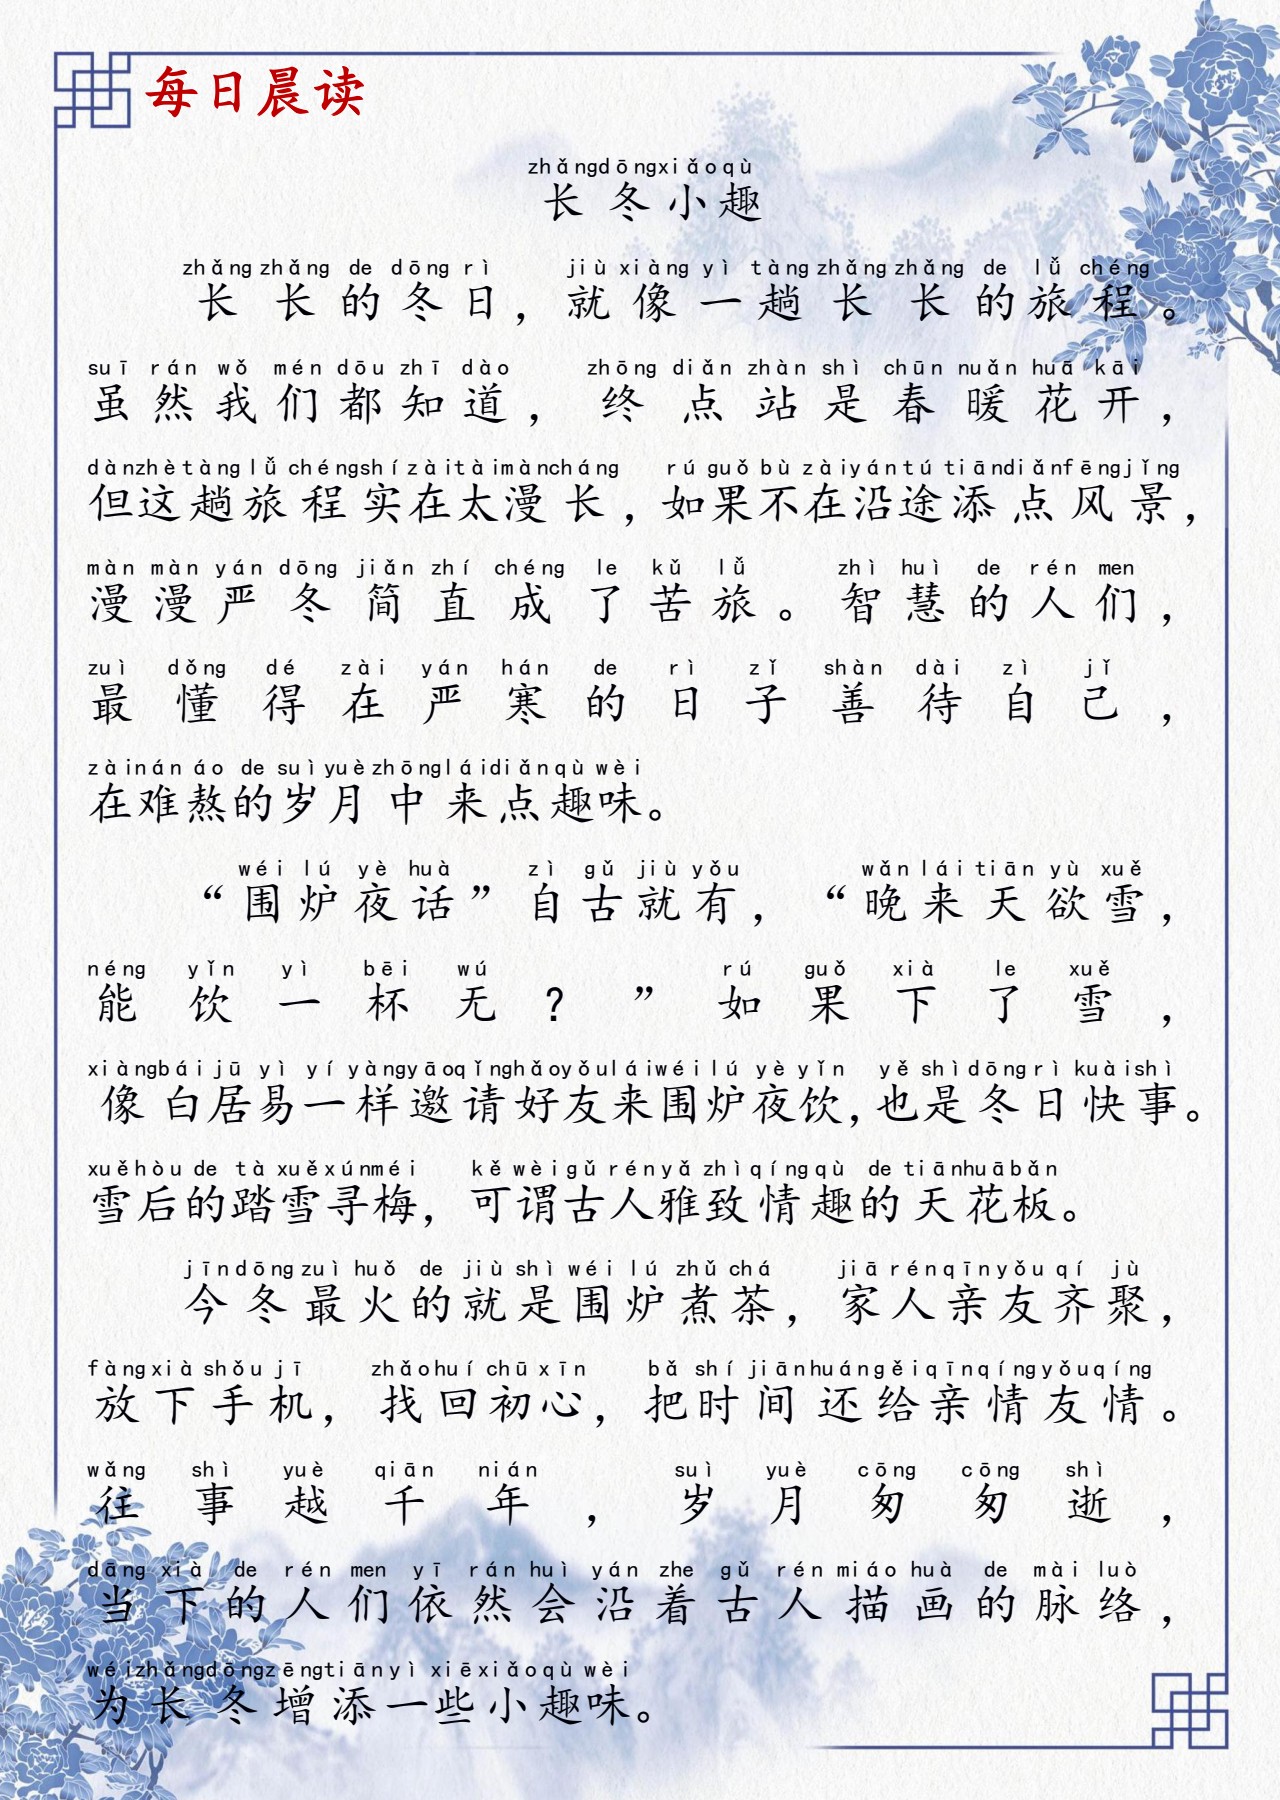 每日晨读
zhǎngdōngxiǎoqù
长冬小趣
zhǎng zhǎng de dōng rì jiù xiàng yì tàng zhǎng zhǎng de lǚ chéng
长长的冬日，就像一趟长长的旅程。
suī rán wǒ mén dōu zhī dào zhōng diǎn zhàn shì chūn nuǎn huā kāi
虽然我们都知道，终点站是春暖花开，
dànzhètàng lǚ chéngshízàitàimàncháng rú guǒ bù zàiyántú tiāndiǎnfēngjǐng
但这趟旅程实在太漫长，如果不在沿途添点风景，
màn màn yán dōng jiǎn zhí chéng le kǔ lǚ zhì huì de rén men
漫漫严冬简直成了苦旅。智慧的人们，
zuì dǒng dé zài yán hán de rì zǐ shàn dài zì jǐ
最懂得在严寒的日子善待自己，
zàinán áo de suìyuèzhōngláidiǎnqù wèi
在难熬的岁月中来点趣味。
wéi lú yè huà zì gǔ jiù yǒu wǎn lái tiān yù xuě
“围炉夜话”自古就有，“晚来天欲雪，
néng yǐn yì bēi wú rú guǒ xià le xuě
能饮一杯无？”如果下了雪，
xiàngbáijū yì yí yàngyāoqǐnghǎoyǒuláiwéilú yè yǐn yě shìdōngrì kuàishì
像白居易一样邀请好友来围炉夜饮，也是冬日快事。
xuěhòu de tà xuěxúnméi kě wèigǔ rényǎ zhìqíngqù de tiānhuābǎn
雪后的踏雪寻梅，可谓古人雅致情趣的天花板。
jīndōng zuì huǒ de jiù shì wéi lú zhǔ chá jiā rénqīnyǒu qí jù
今冬最火的就是围炉煮茶，家人亲友齐聚，
fàngxià shǒu jī zhǎohuí chū xīn bǎ shí jiānhuángěiqīnqíngyǒuqíng
放下手机，找回初心，把时间还给亲情友情。
wǎng shì yuè qiān nián suì yuè cōng cōng shì
往事越千年，岁月匆匆逝，
dāng xià de rén men yī rán huì yán zhe gǔ rén miáo huà de mài luò
当下的人们依然会沿着古人描画的脉络，
wéizhǎngdōngzēngtiānyì xiēxiǎoqù wèi
为长冬增添一些小趣味。